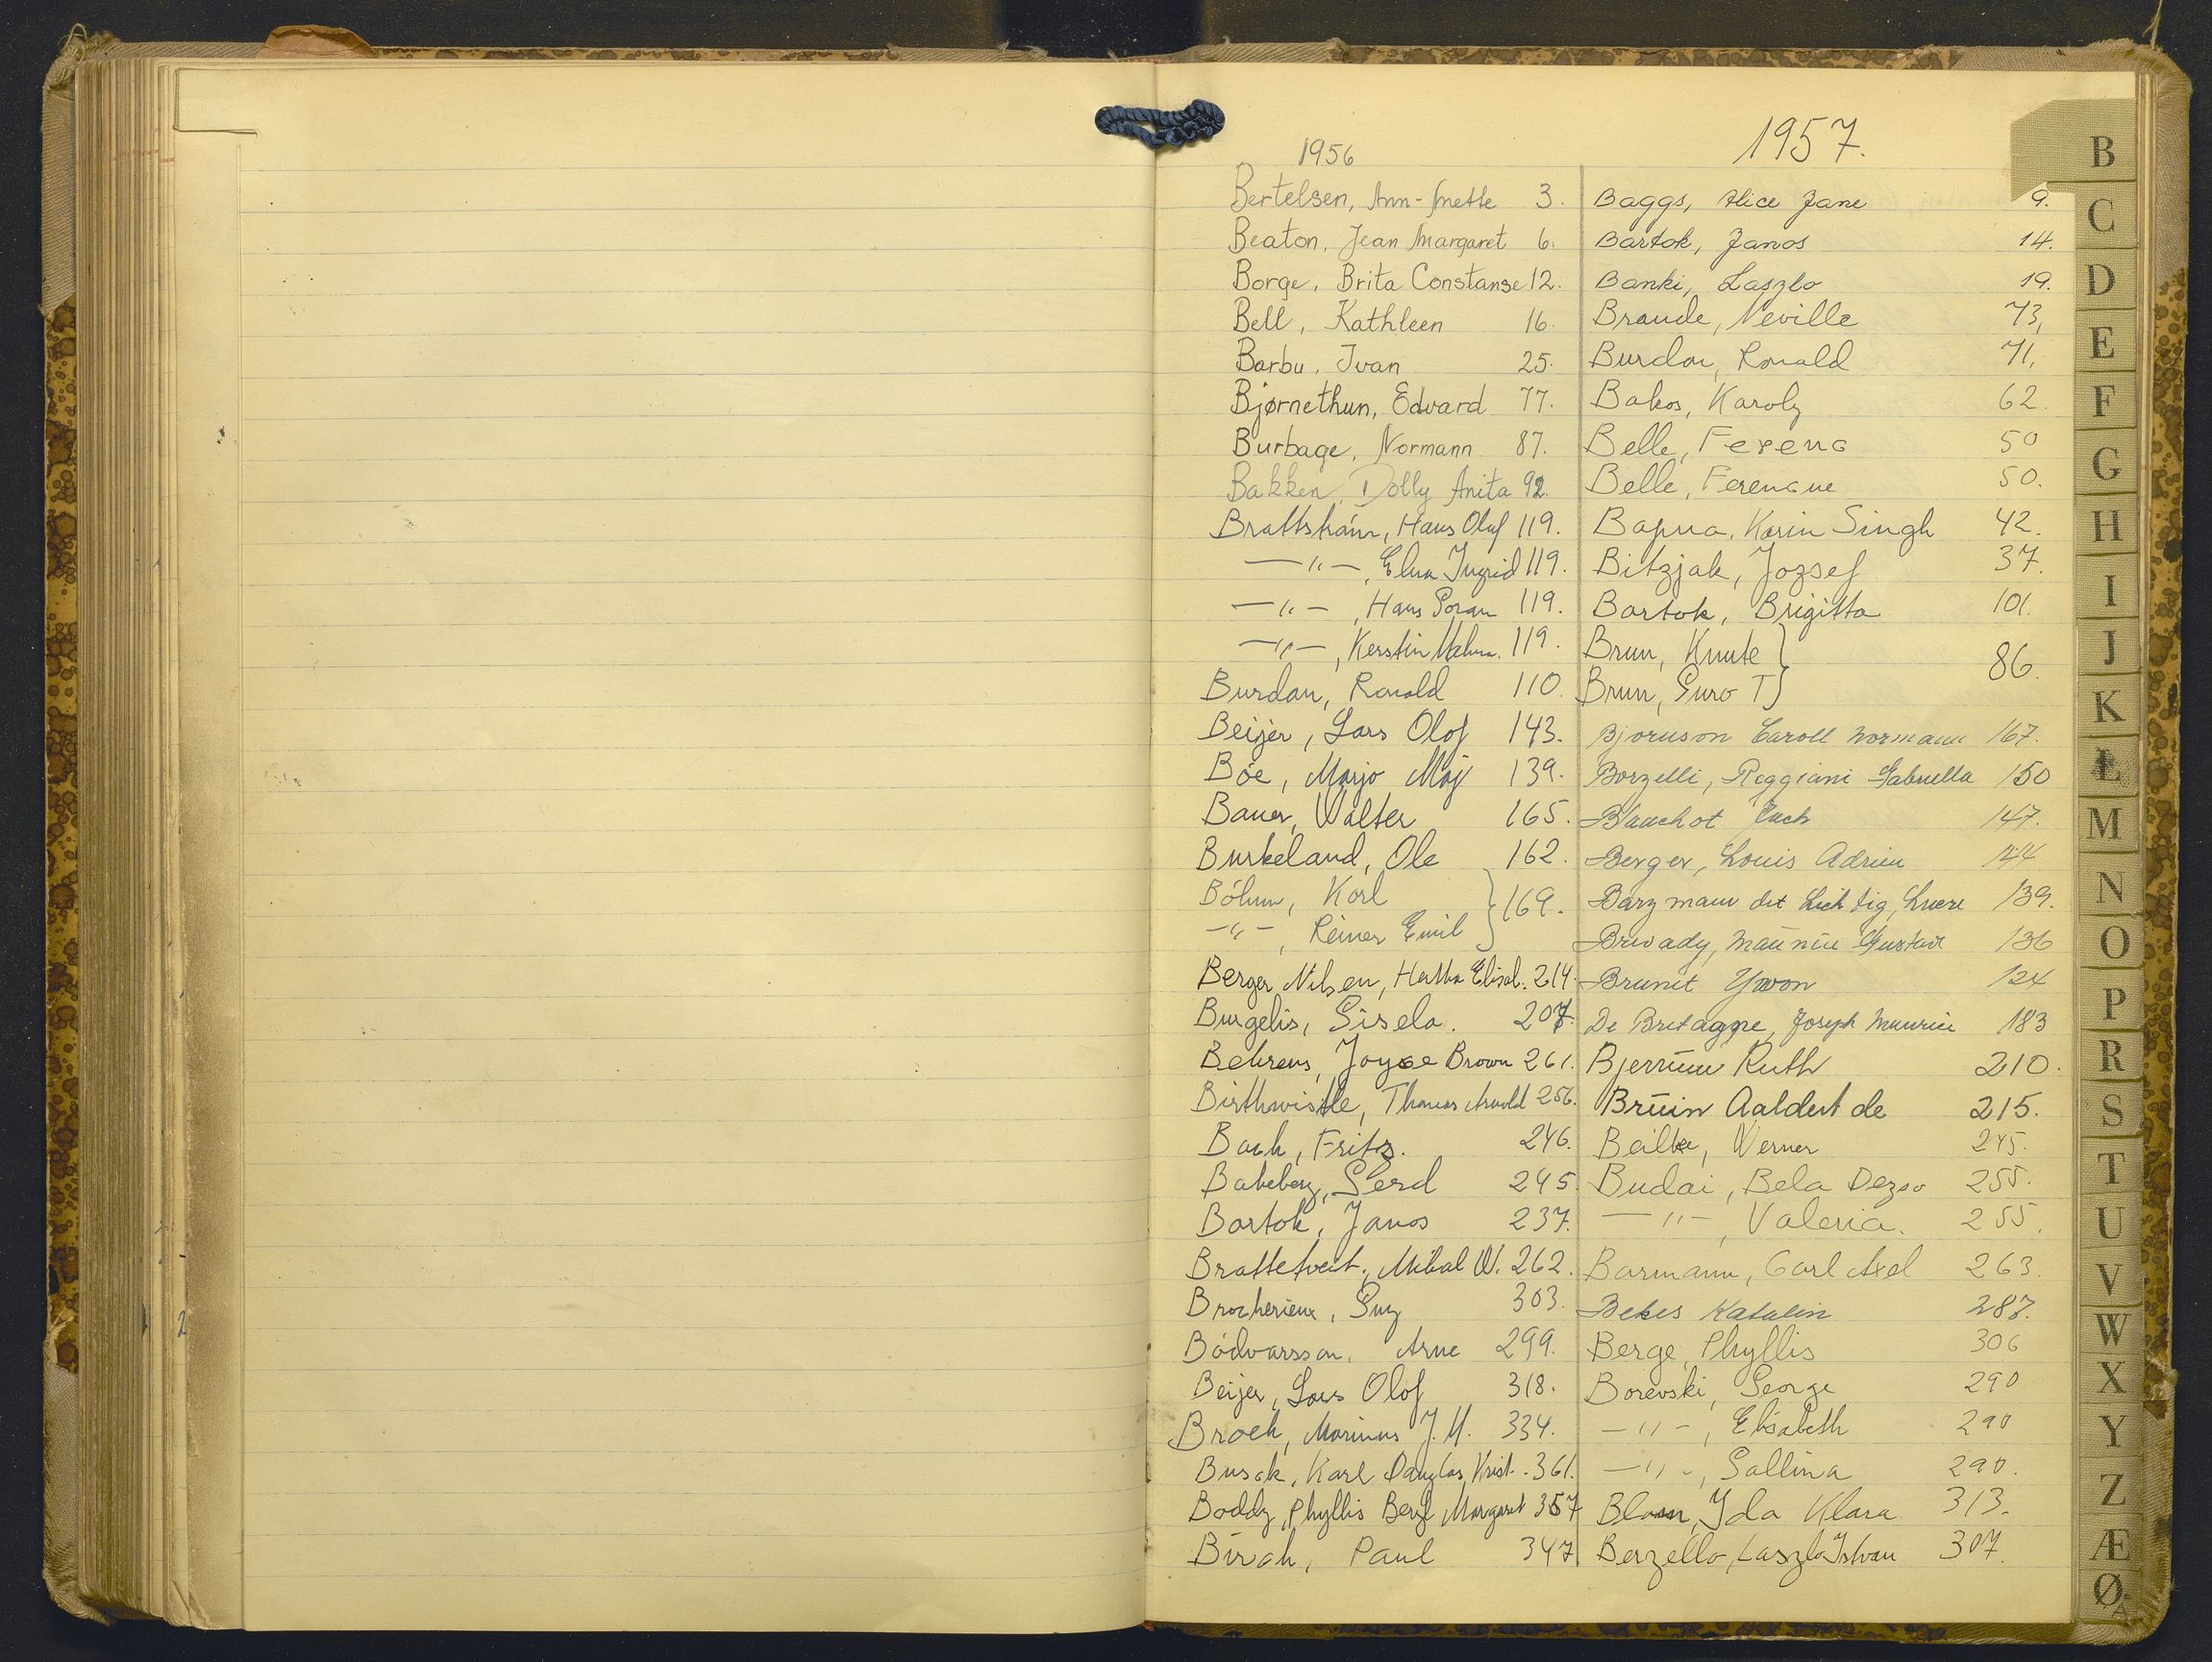 1956
Bertelsen, Ann-Mette 3.
Beaton, Jean Margaret 6.
Borge, Brita Constanse 12.
Bell, Kathleen 16.
Barbu, Ivan 25.
Bjørnethun, Edvard 77.
Burbage, Normann 87.
Bakken, Dolly Anita 92.
Hans Olof 119.
—"—, Elna Ingrid 119.
—"—, Hans Göran 119.
—"—, Kerstin 119.
Burdon, Ronald 110.
Beijer, Lars Olof 143.
Böe, Marjo Maj 139.
Bauer, Walter 165.
Burkeland, Ole 162.
Böhm, Karl } 169.
—"—, Reiner Emil
Berger Nilsen, Hertha Elisab. 214.
Burgelis, Gisela. 207.
Behrens, Joyce Brown 261.
Birthwistle, Thomas Arnold 256.
Bach, Fritz. 246.
Bakeberg, Gerd 245.
Bartok, Janos 237.
Brattetveit, Mikal W. 262.
Brocherieux, Guy 303.
Bödvarsson, Arne 299.
Beijer, Lars Olof 318.
Broek, Marinus J. H. 334.
Busck, Karl Douglas Krist. 361.
Boddy, Phyllis Beryl Margaret 357
Birch, Paul 347
1957.
Baggs, Alice Jane 9.
Bartok, Janos 14.
Banki, Laszlo 19.
Braude, Neville 73,
Burdon, Ronald 71,
Bakos, Karoly 62.
Belle, Ferenc 50
Belle, Ferencne 50.
Bapna, Karin Singh 42.
Bitzjak, Jozsef 37.
Bartok, Brigitta 101.
Brun, Knute }
Brun, Guro T } 86.
Bjornson Caroll Normann 167.
Borzelli, Reggiani Gabriella 150
Blanchot 147.
Berger, Louis Adrien 144
Barzmann det Lichtig, 139.
Maurice Gustave 136
Brunet Yvon 124
De Bretagne, Joseph Maurice 183
Bjerrum Ruth 210.
Bruin Aaldert de 215.
Beilke, Werner 245.
Budai, Bela Dezso 255.
—"—, Valeria. 255.
Barmann, Carl Axel 263.
Bekes Katalin 287.
Berge, Phyllis 306
Borevski, George 290
—"—, Elisabeth 290
—"—, Gallina 290.
Ida Klara 313.
Berzello, Laszlo Istvan 307.
B
C
D
E
F
G
H
I
J
K
L
M
N
O
P
R
S
T
U
V
W
X
Y
Z
Æ
Ø
Å